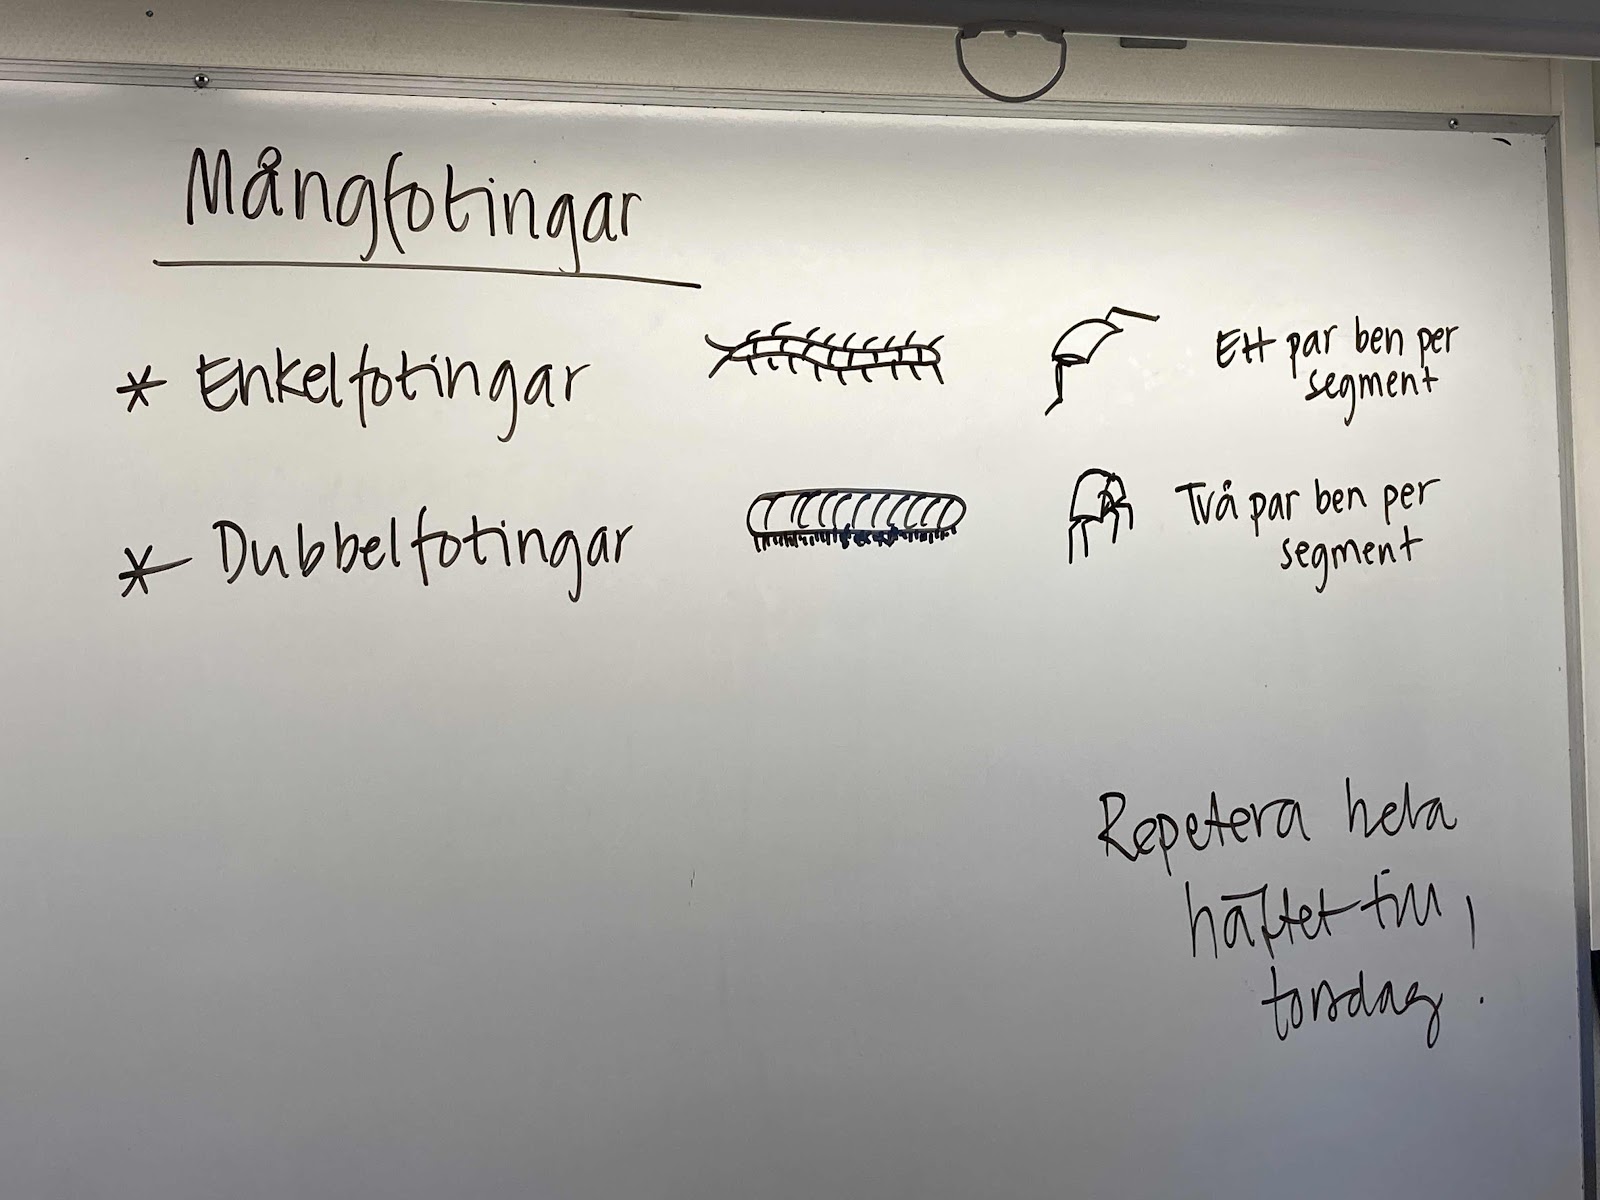 Mångfotingar
* Enkelfotingar
Ett par ben per
segment
* Dubbelfotingar
Två par ben per
segment
Repetera hela
häftet till
torsdag!